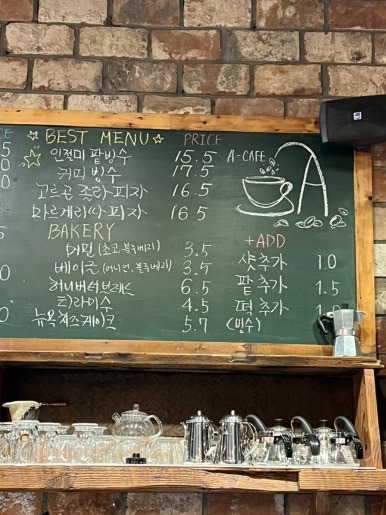 CE
☆☆ BEST MENU ☆ PRICE
인절미 팥빙수 15.5
커피 빙수 17.5
고르곤 졸라 피자 16.5
마르게리따 피자 16.5
BAKERY
머핀 (초코.블루베리) 3.5
베이글 (어니언.블루베리) 3.5
허니버터브레드 6.5
티라미수 4.5
뉴욕치즈케이크 5.7
A-CAFE
A
+ADD
샷추가 1.0
팥 추가 1.5
떡 추가
(빙수)